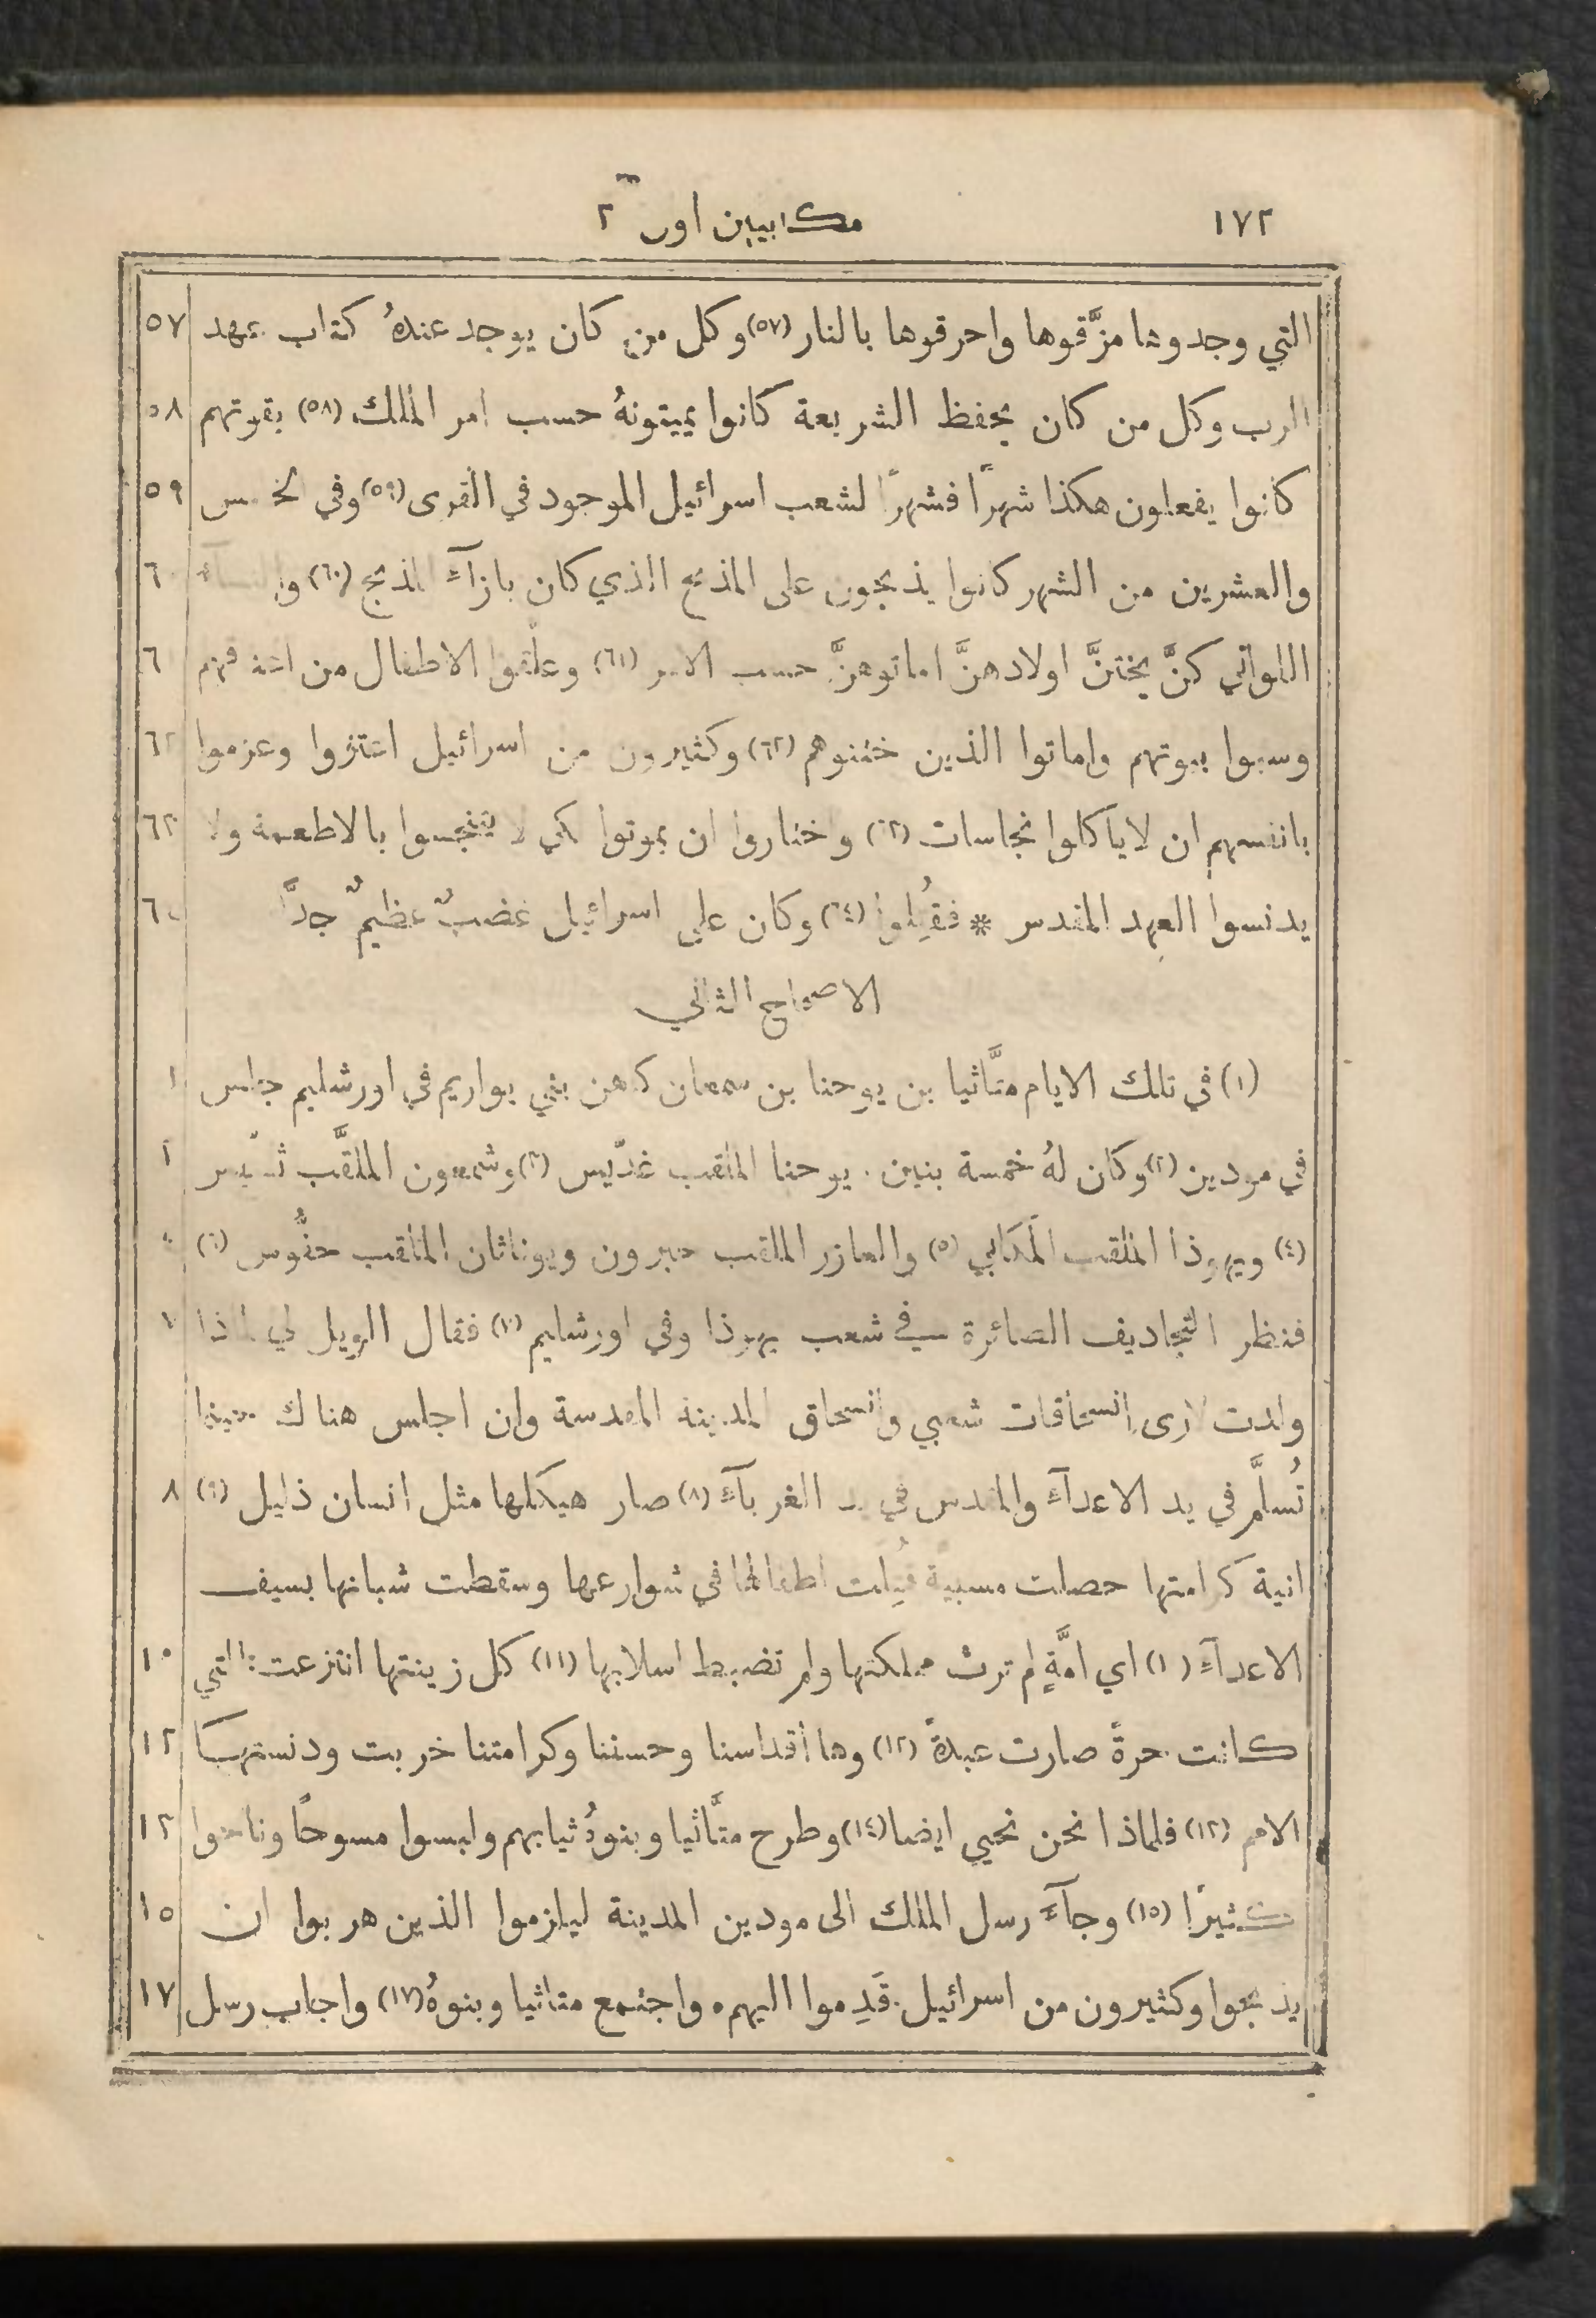 ١٧٢
مكابيين اول ٢
التي وجدوها مزَّقوها واحرقوها بالنار (٥٧) وكل من كان يوجد عندهُ كتاب عهد ٥٧
الرب وكل من كان يحفظ الشريعة كانوا يميتونهُ حسب امر الملك (٥٨) بقوتهم ٥٨
كانوا يفعلون هكذا شهرًا فشهرًا لشعب اسرائيل الموجود في القرى (٥٩) وفي الخامس ٥٩
والعشرين من الشهر كانوا يذبحون على المذبح الذي كان بازآء المذبح (٦٠) والنسآء ٦٠
اللواتي كنَّ يختنَّ اولادهنَّ اماتوهنَّ حسب الامر (٦١) وعلّقوا الاطفال من اعناقهم ٦
وسبوا بيوتهم واماتوا الذين ختنوهم (٦٢) وكثيرون من اسرائيل اعتزوا وعزموا ٦٢
بانفسهم ان لا ياكلوا نجاسات (٦٣) واختاروا ان يموتوا لكي لا يتنجسوا بالاطعمة ولا ٦٣
يدنسوا العهد المقدس * فقُتِلوا (٦٤) وكان على اسرائيل غضبٌ عظيمٌ جدًّا ٦٤
الاصحاح الثاني
(١) في تلك الايام متَّاثيا بن يوحنا بن سمعان كاهن بني يواريم في اورشليم جلس ١
في مودين (٢) وكان لهُ خمسة بنين. يوحنا الملقب غدّيس (٣) وشمعون الملقَّب ثسّيس ٢
(٤) ويهوذا الملقب المكابي (٥) والعازر الملقب حبرون ويوناثان الملقب حفُّوس (٦)
فنظر التجاديف الصائرة في شعب يهوذا وفي اورشليم (٧) فقال الويل لي لماذا ٧
ولدت لارى انسحاقات شعبي وانسحاق المدينة المقدسة وان اجلس هناك حينما
تُسلَّم في يد الاعدآء والمقدس في يد الغربآء (٨) صار هيكلها مثل انسان ذليل (٩) ٨
انية كرامتها حصلت مسبية قُتِلت اطفالها في شوارعها وسقطت شبانها بسيف
الاعدآء (١٠) اي امَّةٍ لم ترث مملكتها ولم تضبط اسلابها (١١) كل زينتها انتزعت. التي ١٠
كانت حرةً صارت عبدةً (١٢) وها أقداسنا وحسننا وكرامتنا خربت ودنستها ١٢
الامم (١٣) فلماذا نحن نحيي ايضا (١٤) وطرح متَّاثيا وبنوهُ ثيابهم ولبسوا مسوحًا وناحوا ١٣
كثيرًا (١٥) وجآء رسل الملك الى مودين المدينة ليلزموا الذين هربوا ان ١٥
يذبحوا وكثيرون من اسرائيل. قَدِموا اليهم. واجتمع متاثيا وبنوهُ (١٧) واجاب رسل ١٧